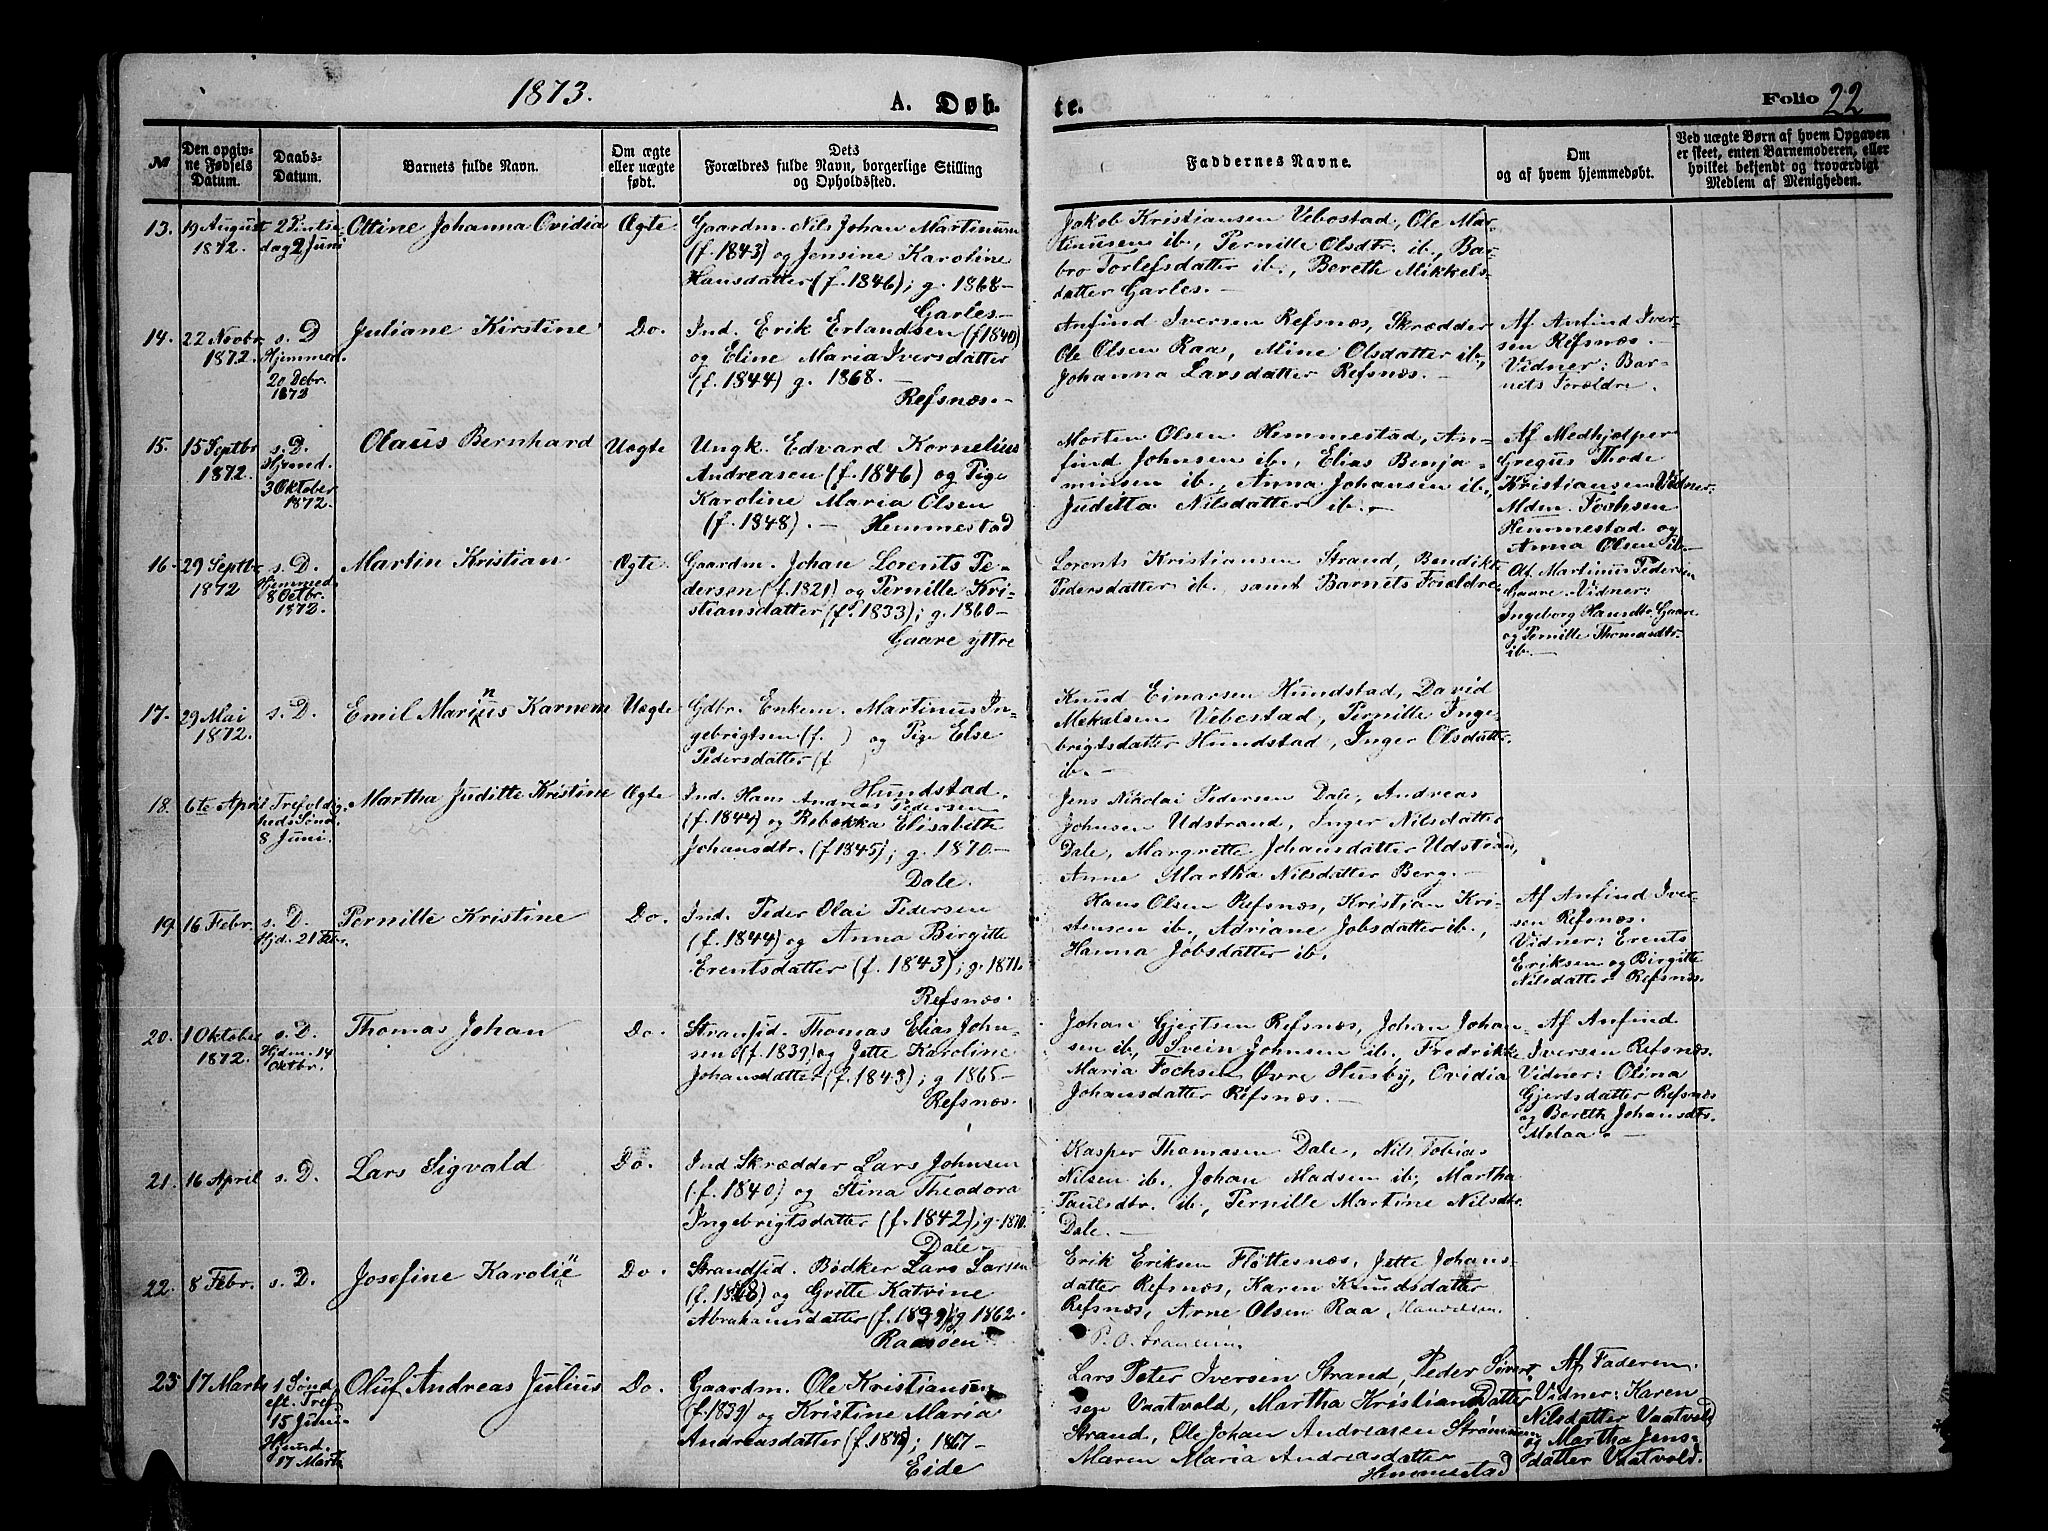 1873.
A. Døb-
te.
Folio 22
№
Den opgiv-
ne Fødsels
Datum.
Daabs-
Datum.
Barnets fulde Navn.
Om ægte
eller uægte
født.
Dets
Forældres fulde Navn, borgerlige Stilling
og Opholdssted.
Faddernes Navne.
Om
og af hvem hjemmedøbt.
Ved uægte Børn af hvem Opgaven
er skeet, enten Barnemoderen, eller
hvilket bekjendt og troværdigt
Medlem af Menigheden.
13.
19 August
1872.
2 Pintse
dag 2 Juni
Ottine Johanna Ovidia
Ægte
Gaardm. Nils Johan Martinusen
(f. 1843) og Jensine Karoline
Hansdatter (f. 1846); g. 1868 —
Garles —
Jakob Kristiansen Vebostad, Ole Mar-
tinusen ib., Pernille Olsdtr. ib., Bar-
bro Torlefsdatter ib., Berethe Mikkels-
datter Garles. —
14.
22 Novbr.
1872.
s. D
Hjemmed.
20 Debr.
1872
Juliane Kirstine
Do.
Ind. Erik Erlandsen (f 1840)
og Eline Maria Iversdatter
(f. 1844) g. 1868. —
Refsnæs. —
Anfind Iversen Refsnæs, Skrædder
Ole Olsen Raa, Mine Olsdatter ib.,
Johanna Larsdatter Refsnæs. —
Af Anfind Iver-
sen Refsnæs. —
Vidner: Bar-
nets Forældre.
15.
15 Septbr
1872.
s. D.
Hjmed.
3 Oktober
1872.
Olaus Bernhard
Uægte
Ungk. Edvard Kornelius
Andreasen (f. 1846) og Pige
Karoline Maria Olsen
(f. 1848). — Hemmestad
Morten Olsen Hemmestad, An-
find Johnsen ib., Elias Benja-
minsen ib., Anna Johansen ib.,
Juditta Nilsdatter ib. —
Af Medhjælper
Gregus Thode
Kristiansen Vidner:
Mdm. Fochsen
Hemmestad og
Anna Olsen ib. —
16.
29 Septbr
1872
s. D.
Hjemmed.
8 Octbr.
1872.
Martin Kristian
Ægte
Gaardm. Johan Lorents Pe-
dersen (f. 1821) og Pernille Kri-
stiansdatter (f. 1833); g. 1860 —
Gaare yttre
Lorents Kristiansen Strand, Bendikte
Pedersdatter ib., samt Barnets Forældre
Af Martinus Pedersen
Gaare. Vidner:
Ingeborg Hansdtr. Gaare
og Pernille Thomasdtr.
ib. —
17.
29 Mai
1872.
s. D.
Emil Marinus Karnem
Uægte
Gdbr. Enkem. Martinus In-
gebrigtsen (f. ) og Pige Else
Pedersdatter (f
Hundstad.
Knud Einarsen Hundstad, David
Mekalsen Vebostad, Pernille Inge-
brigtsdatter Hundstad, Inger Olsdatter
ib. —
18.
6te April
Trefoldig-
heds Sønd.
8 Juni.
Martha Juditte Kristine
Ægte
Ind. Hans Andreas Pedersen
(f. 1844) og Rebekka Elisabeth
Johansdtr. (f. 1845); g. 1870 —
Dale.
Jens Nikolai Pedersen Dale, Andreas
Johnsen Udstrand, Inger Nilsdatter
Dale, Margrette Johansdatter Udstrand,
Anne Martha Nilsdatter Berg. —
19.
16 Febr.
s. D.
Hjd. 21 Febr.
Pernille Kristine
Do.
Ind. Peder Olai Pedersen
(f. 1844) og Anna Birgitte
Erentsdatter (f. 1843); g. 1871.
Refsnæs.
Hans Olsen Refsnæs, Kristian Kri-
stensen ib., Adriane Jobsdatter ib.,
Hanna Jobsdatter ib.
Af Anfind Iver-
sen Refsnæs.
Vidner: Erents
Eriksen og Birgitte
Nilsdatter Refsnæs.
20.
1 Oktober
1872.
s. D.
Hjdm. 14
Oktbr.
Thomas Johan
Do.
Stransid. Thomas Elias John-
sen (f. 1839) og Jette Karoline
Johansdatter (f. 1843); g 1865 —
Refsnæs.
Johan Gjertsen Refsnæs, Johan Johan-
sen ib., Svein Johnsen ib., Fredrikke
Maria Fochsen Øvre Husby, Ovidia
Johansdatter Refsnæs. —
Af Anfind
Iversen Refsnæs.
Vidner: Olina
Gjertsdatter Refsnæs
og Bereth Johansdtr.
Melaa. —
21.
16 April
s. D.
Lars Sigvald
Do.
Ind Skrædder Lars Johnsen
(f. 1840) og Stina Theodora
Ingebrigtsdatter (f. 1842); g. 1870.
Dale —
Kasper Thomasen Dale, Nils Tobias
Nilsen ib., Johan Madsen ib., Martha
Paulsdtr. ib., Pernille Martine Nilsdtr.
Dale. —
22.
8 Febr.
s. D.
Josefine Karolië
Do.
Strandsid. Bødker Lars Larsen
og Gritte Katrine
Abrahamsdatter g 1862.
Raasøen
Erik Eriksen Fløttesnæs, Jette Johans-
datter Refsnæs, Karen Knudsdatter
Refsnæs, Arne Olsen Raa
23
17 Marts
1 Sønd
eft. Tref.
15 Juni
Hjmd.
17 Marts
Oluf Andreas Julius
Do.
Gaardm. Ole Kristiansen
(f. 1839) og Kristine Maria
Andreasdatter 1867 —
Eide
Lars Peter Iversen Strand, Peder Sivert-
sen Vaatvold, Martha Kristian Datter
Strand, Ole Johan Andreasen Strømmen
Maren Maria Andreasdatter
Hemmestad
Af Faderen.
Vidner: Karen
Nilsdatter Vaatvold
og Martha Jens-
datter Vaatvold.